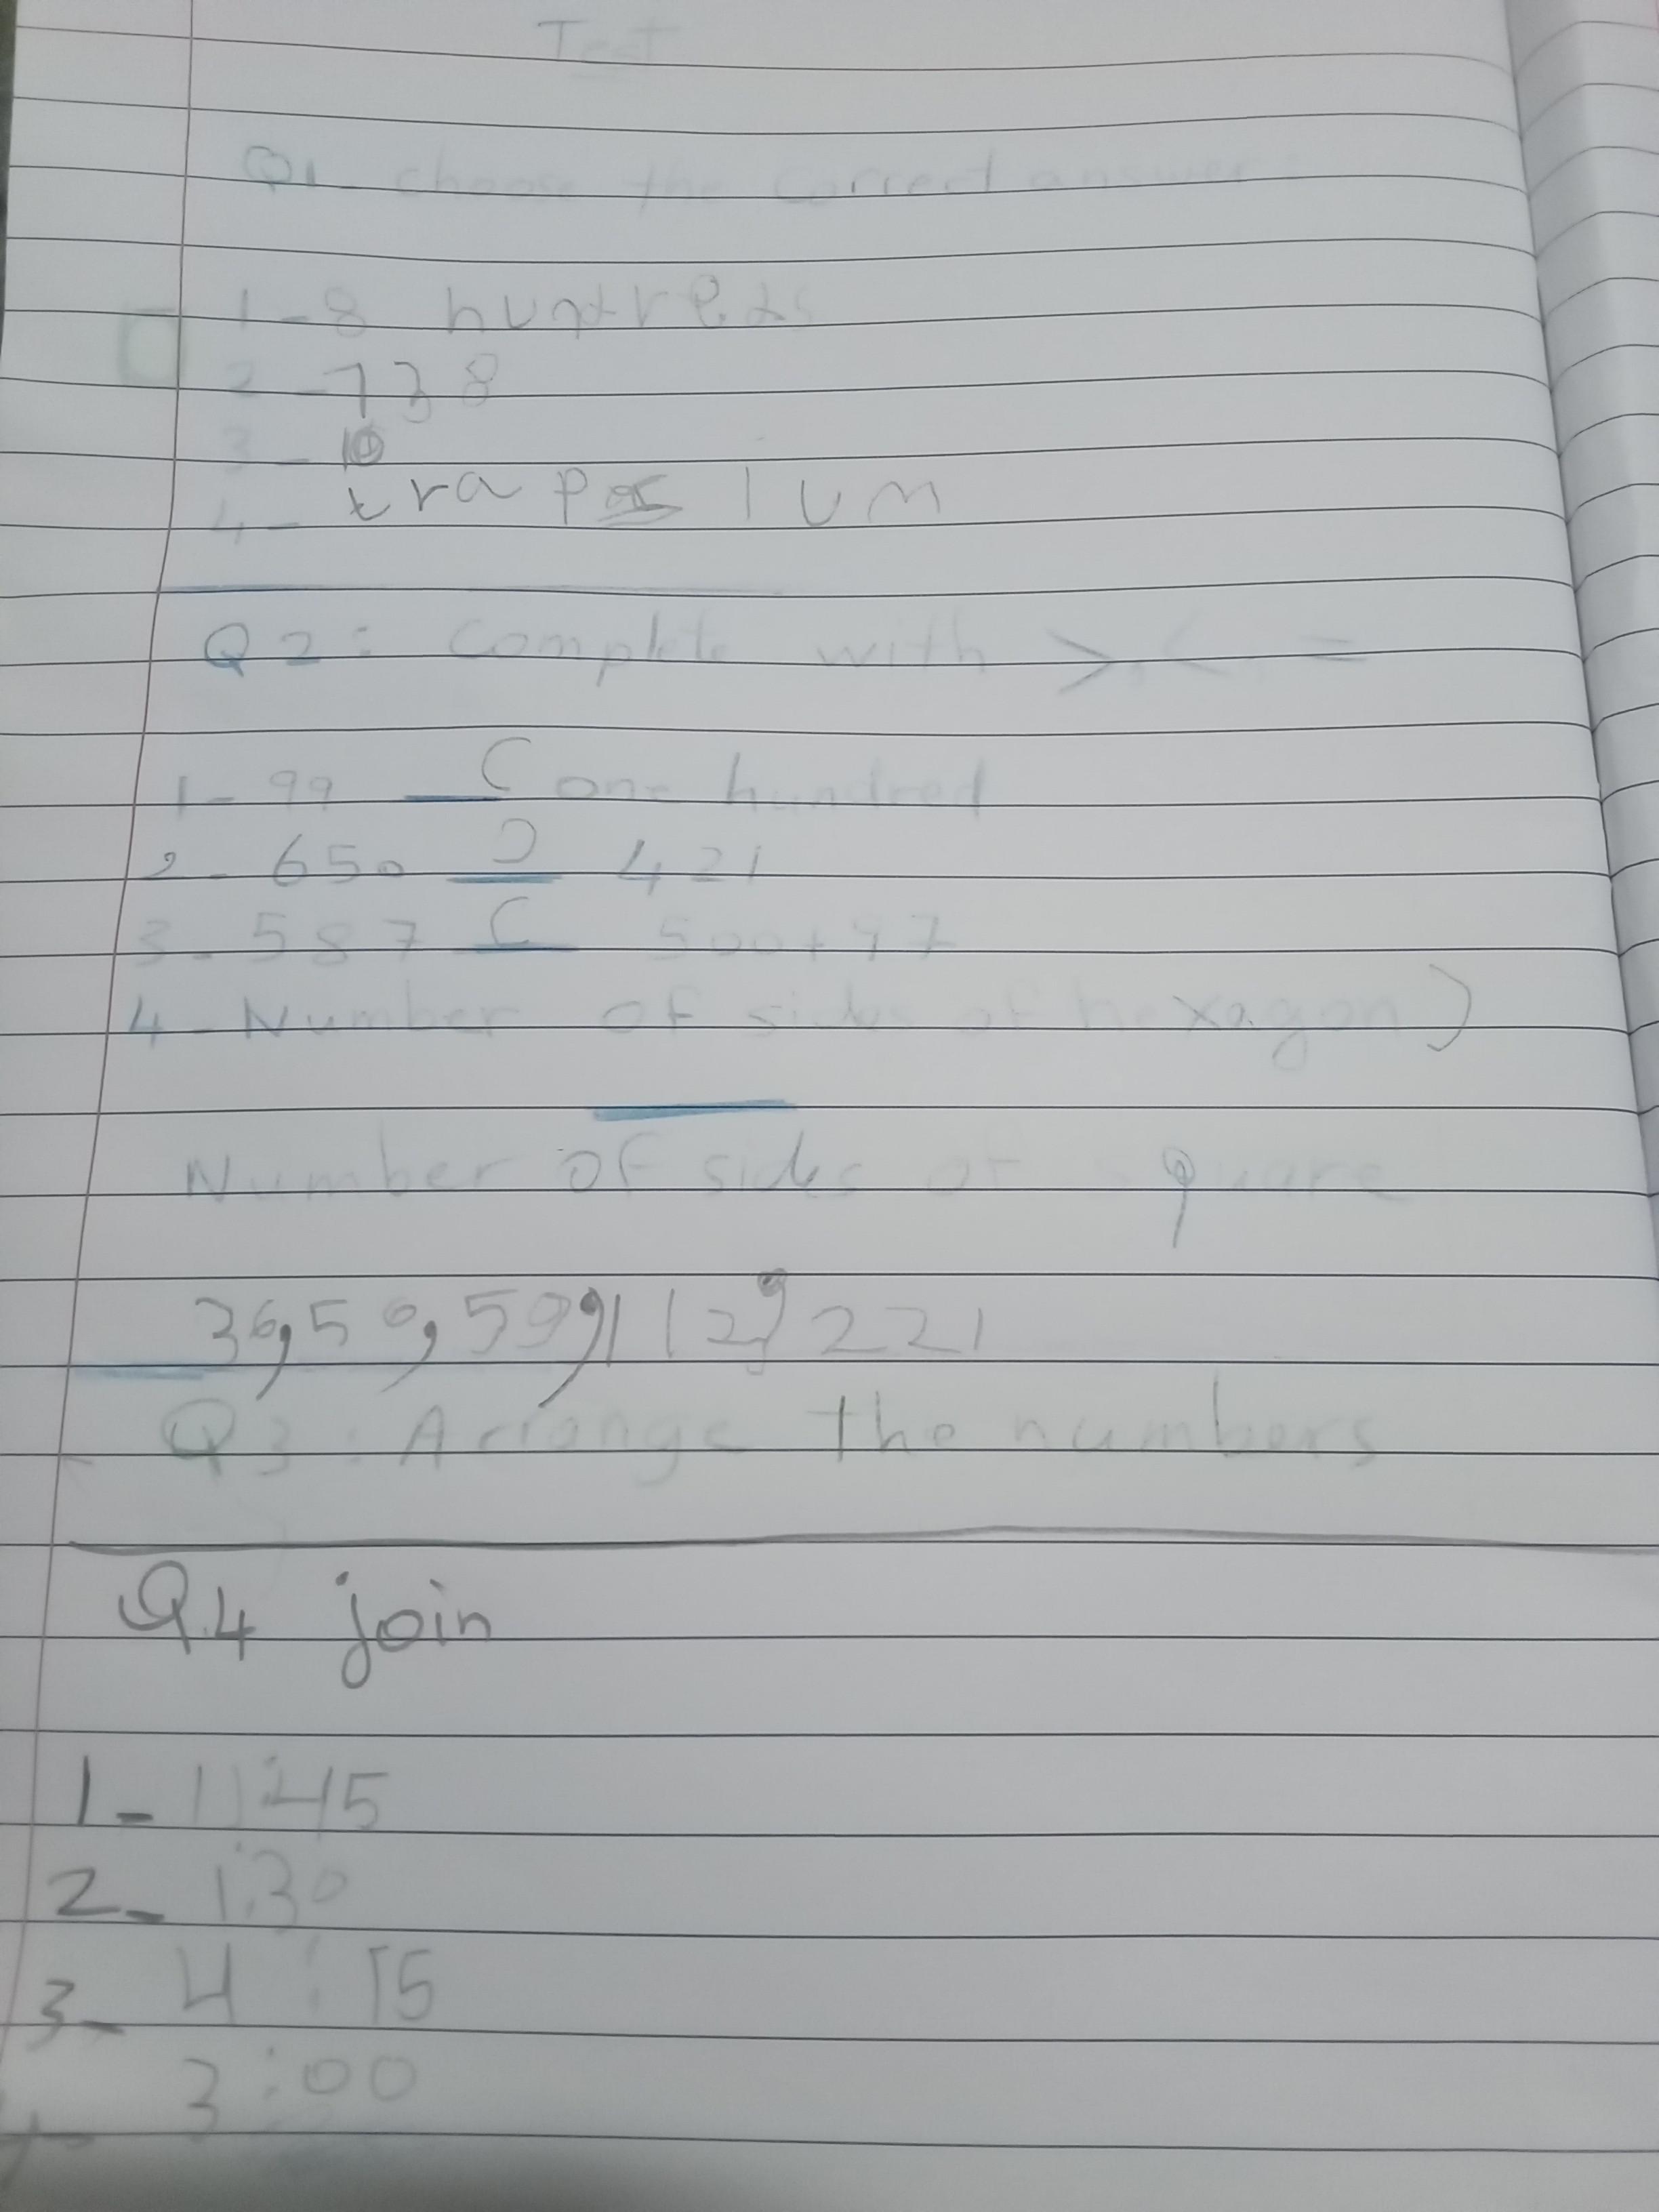 Test
Q1- choose the correct answer:
1-8 hundreds
2-738
3-10
4-
Q2: Complete with >, <, =
1-99 C one hundred
2-650 Ɔ 421
3-587 C 500+97
4-Number of sides of hexagon)
Number of sides of square
36,50,599,112,221
Q3: Arrange the numbers
Q.4 join
1-11:45
2-1:30
3-4:15
3:00